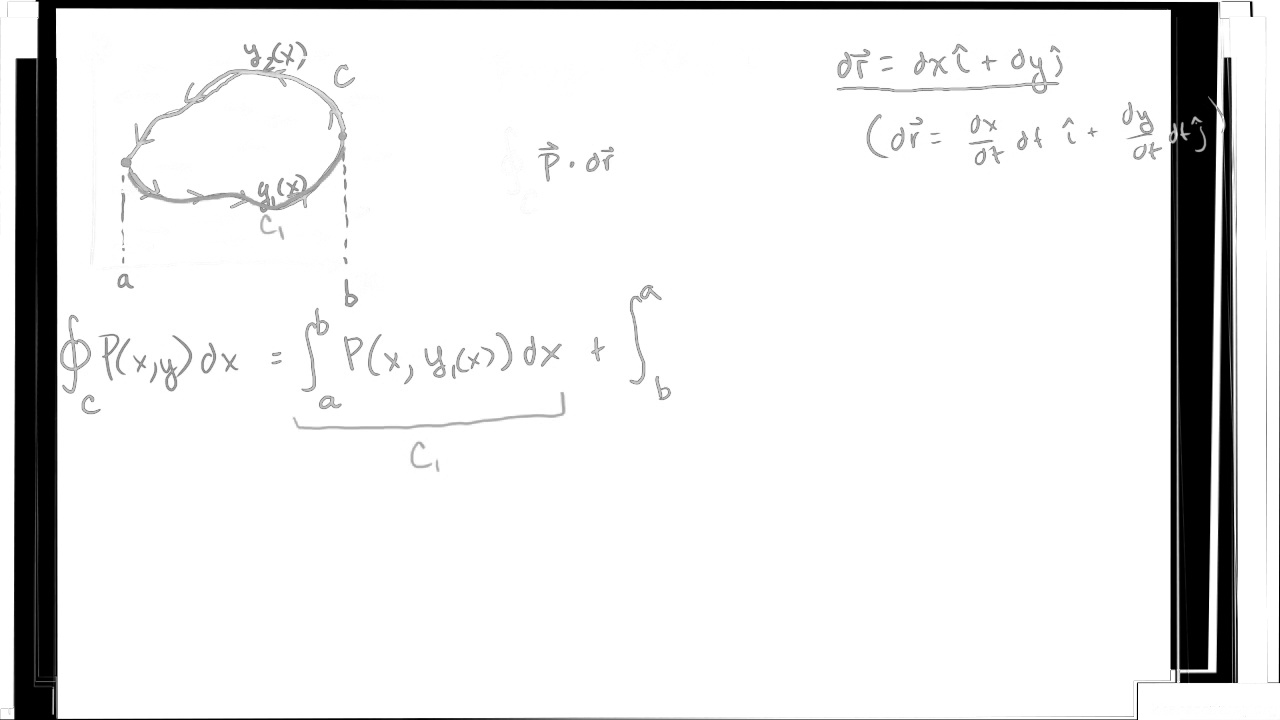 y₂(x)
C
y₁(x)
C₁
a
b
P⃗ · dr⃗
dr⃗ = dx î + dy ĵ
(dr⃗ = dx/dt dt î + dy/dt dt ĵ)
∮_C P(x,y) dx = ∫_a^b P(x, y₁(x)) dx + ∫_b^a
C₁